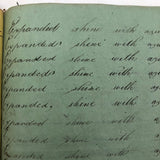 Expanded shine with azu
Expanded shine with azu
Expanded shine with azu
Expanded shine with azu
Expanded shine with azu
Expanded, shine with az
Expanded shine with az
Expanded shine with az
Expanded shine with